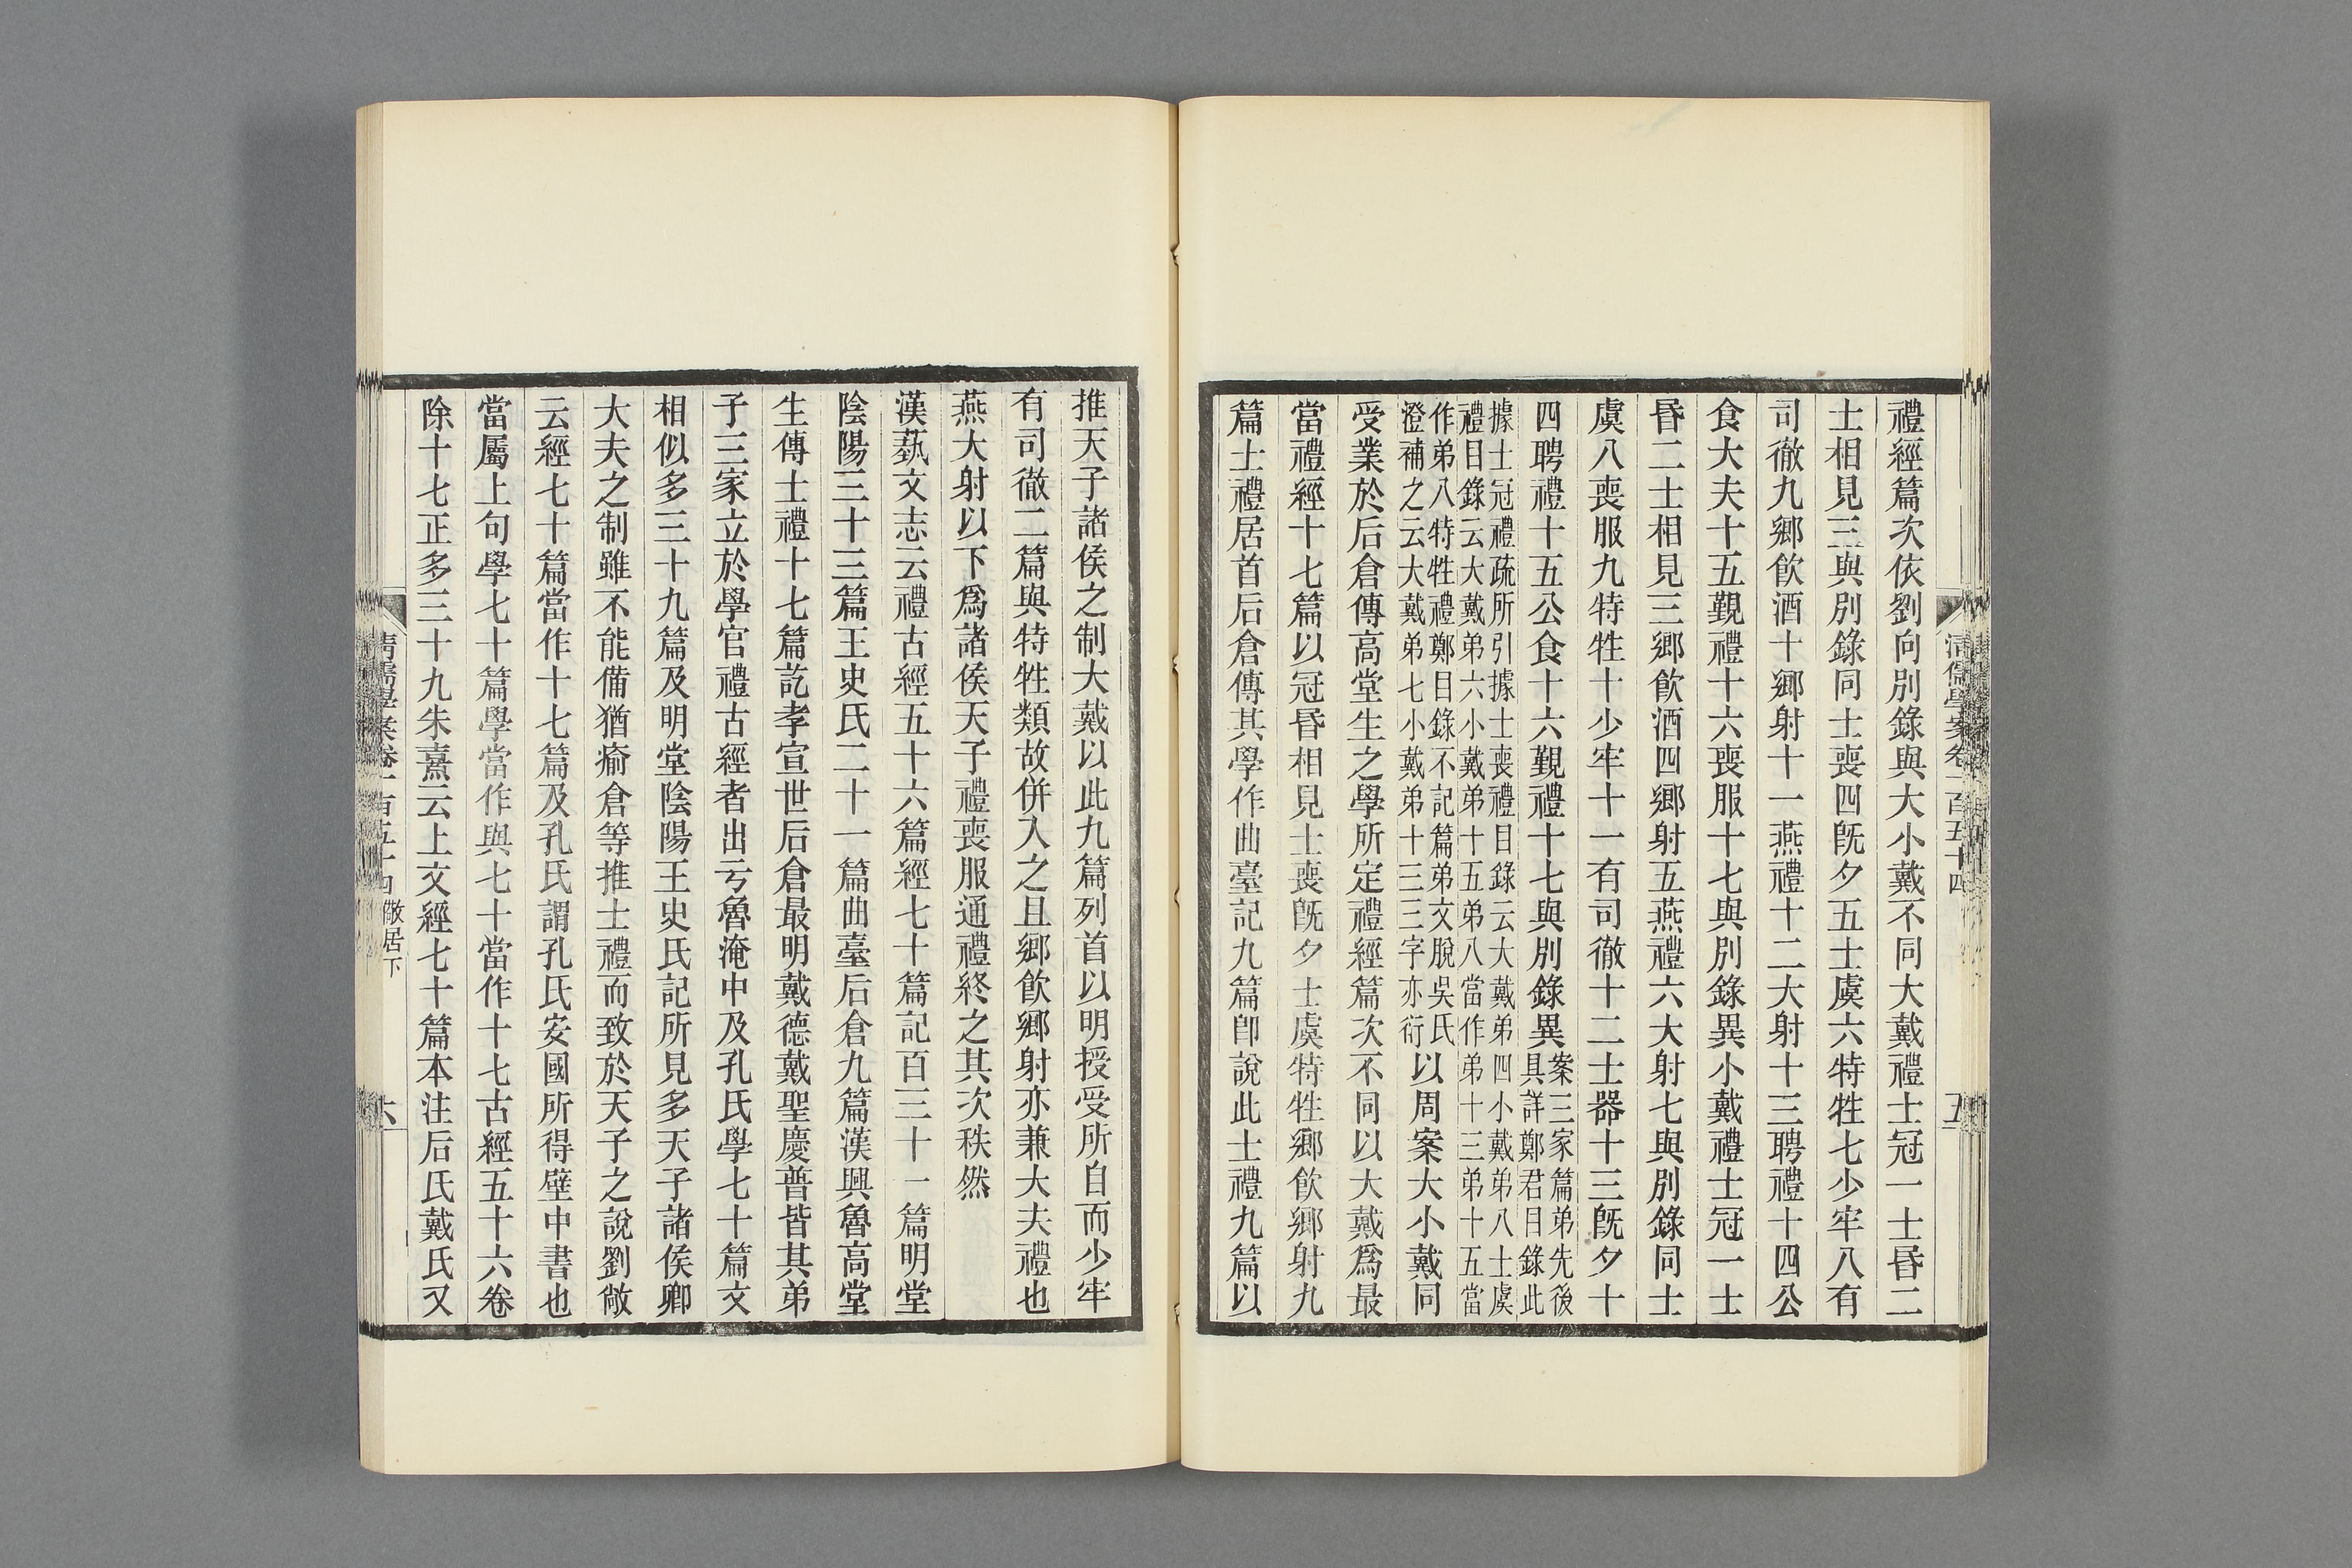 清儒學案卷一百五十四
五
禮經篇次依劉向別錄與大小戴不同大戴禮士冠一士昬二
士相見三與別錄同士喪四旣夕五士虞六特牲七少牢八有
司徹九鄉飮酒十鄉射十一燕禮十二大射十三聘禮十四公
食大夫十五覲禮十六喪服十七與別錄異小戴禮士冠一士
昬二士相見三鄉飮酒四鄉射五燕禮六大射七與別錄同士
虞八喪服九特牲十少牢十一有司徹十二士器十三旣夕十
四聘禮十五公食十六覲禮十七與別錄異案三家篇弟先後
具詳鄭君目錄此
據士冠禮疏所引據士喪禮目錄云大戴弟四小戴弟八士虞
禮目錄云大戴弟六小戴弟十五弟八當作弟十三弟十五當
作弟八特牲禮鄭目錄不記篇弟文脫吳氏
澄補之云大戴弟七小戴弟十三三字亦衍以周案大小戴同
受業於后倉傳高堂生之學所定禮經篇次不同以大戴爲最
當禮經十七篇以冠昬相見士喪旣夕士虞特牲鄉飮鄉射九
篇士禮居首后倉傳其學作曲臺記九篇卽說此士禮九篇以
推天子諸侯之制大戴以此九篇列首以明授受所自而少牢
有司徹二篇與特牲類故併入之且鄉飮鄉射亦兼大夫禮也
燕大射以下爲諸侯天子禮喪服通禮終之其次秩然
漢蓺文志云禮古經五十六篇經七十篇記百三十一篇明堂
陰陽三十三篇王史氏二十一篇曲臺后倉九篇漢興魯高堂
生傳士禮十七篇訖孝宣世后倉最明戴德戴聖慶普皆其弟
子三家立於學官禮古經者出亏魯淹中及孔氏學七十篇文
相似多三十九篇及明堂陰陽王史氏記所見多天子諸侯卿
大夫之制雖不能備猶瘉倉等推士禮而致於天子之說劉敞
云經七十篇當作十七篇及孔氏謂孔氏安國所得壁中書也
當屬上句學七十篇學當作與七十當作十七古經五十六卷
除十七正多三十九朱熹云上文經七十篇本注后氏戴氏又
清儒學案卷一百五十四 儆居下
六